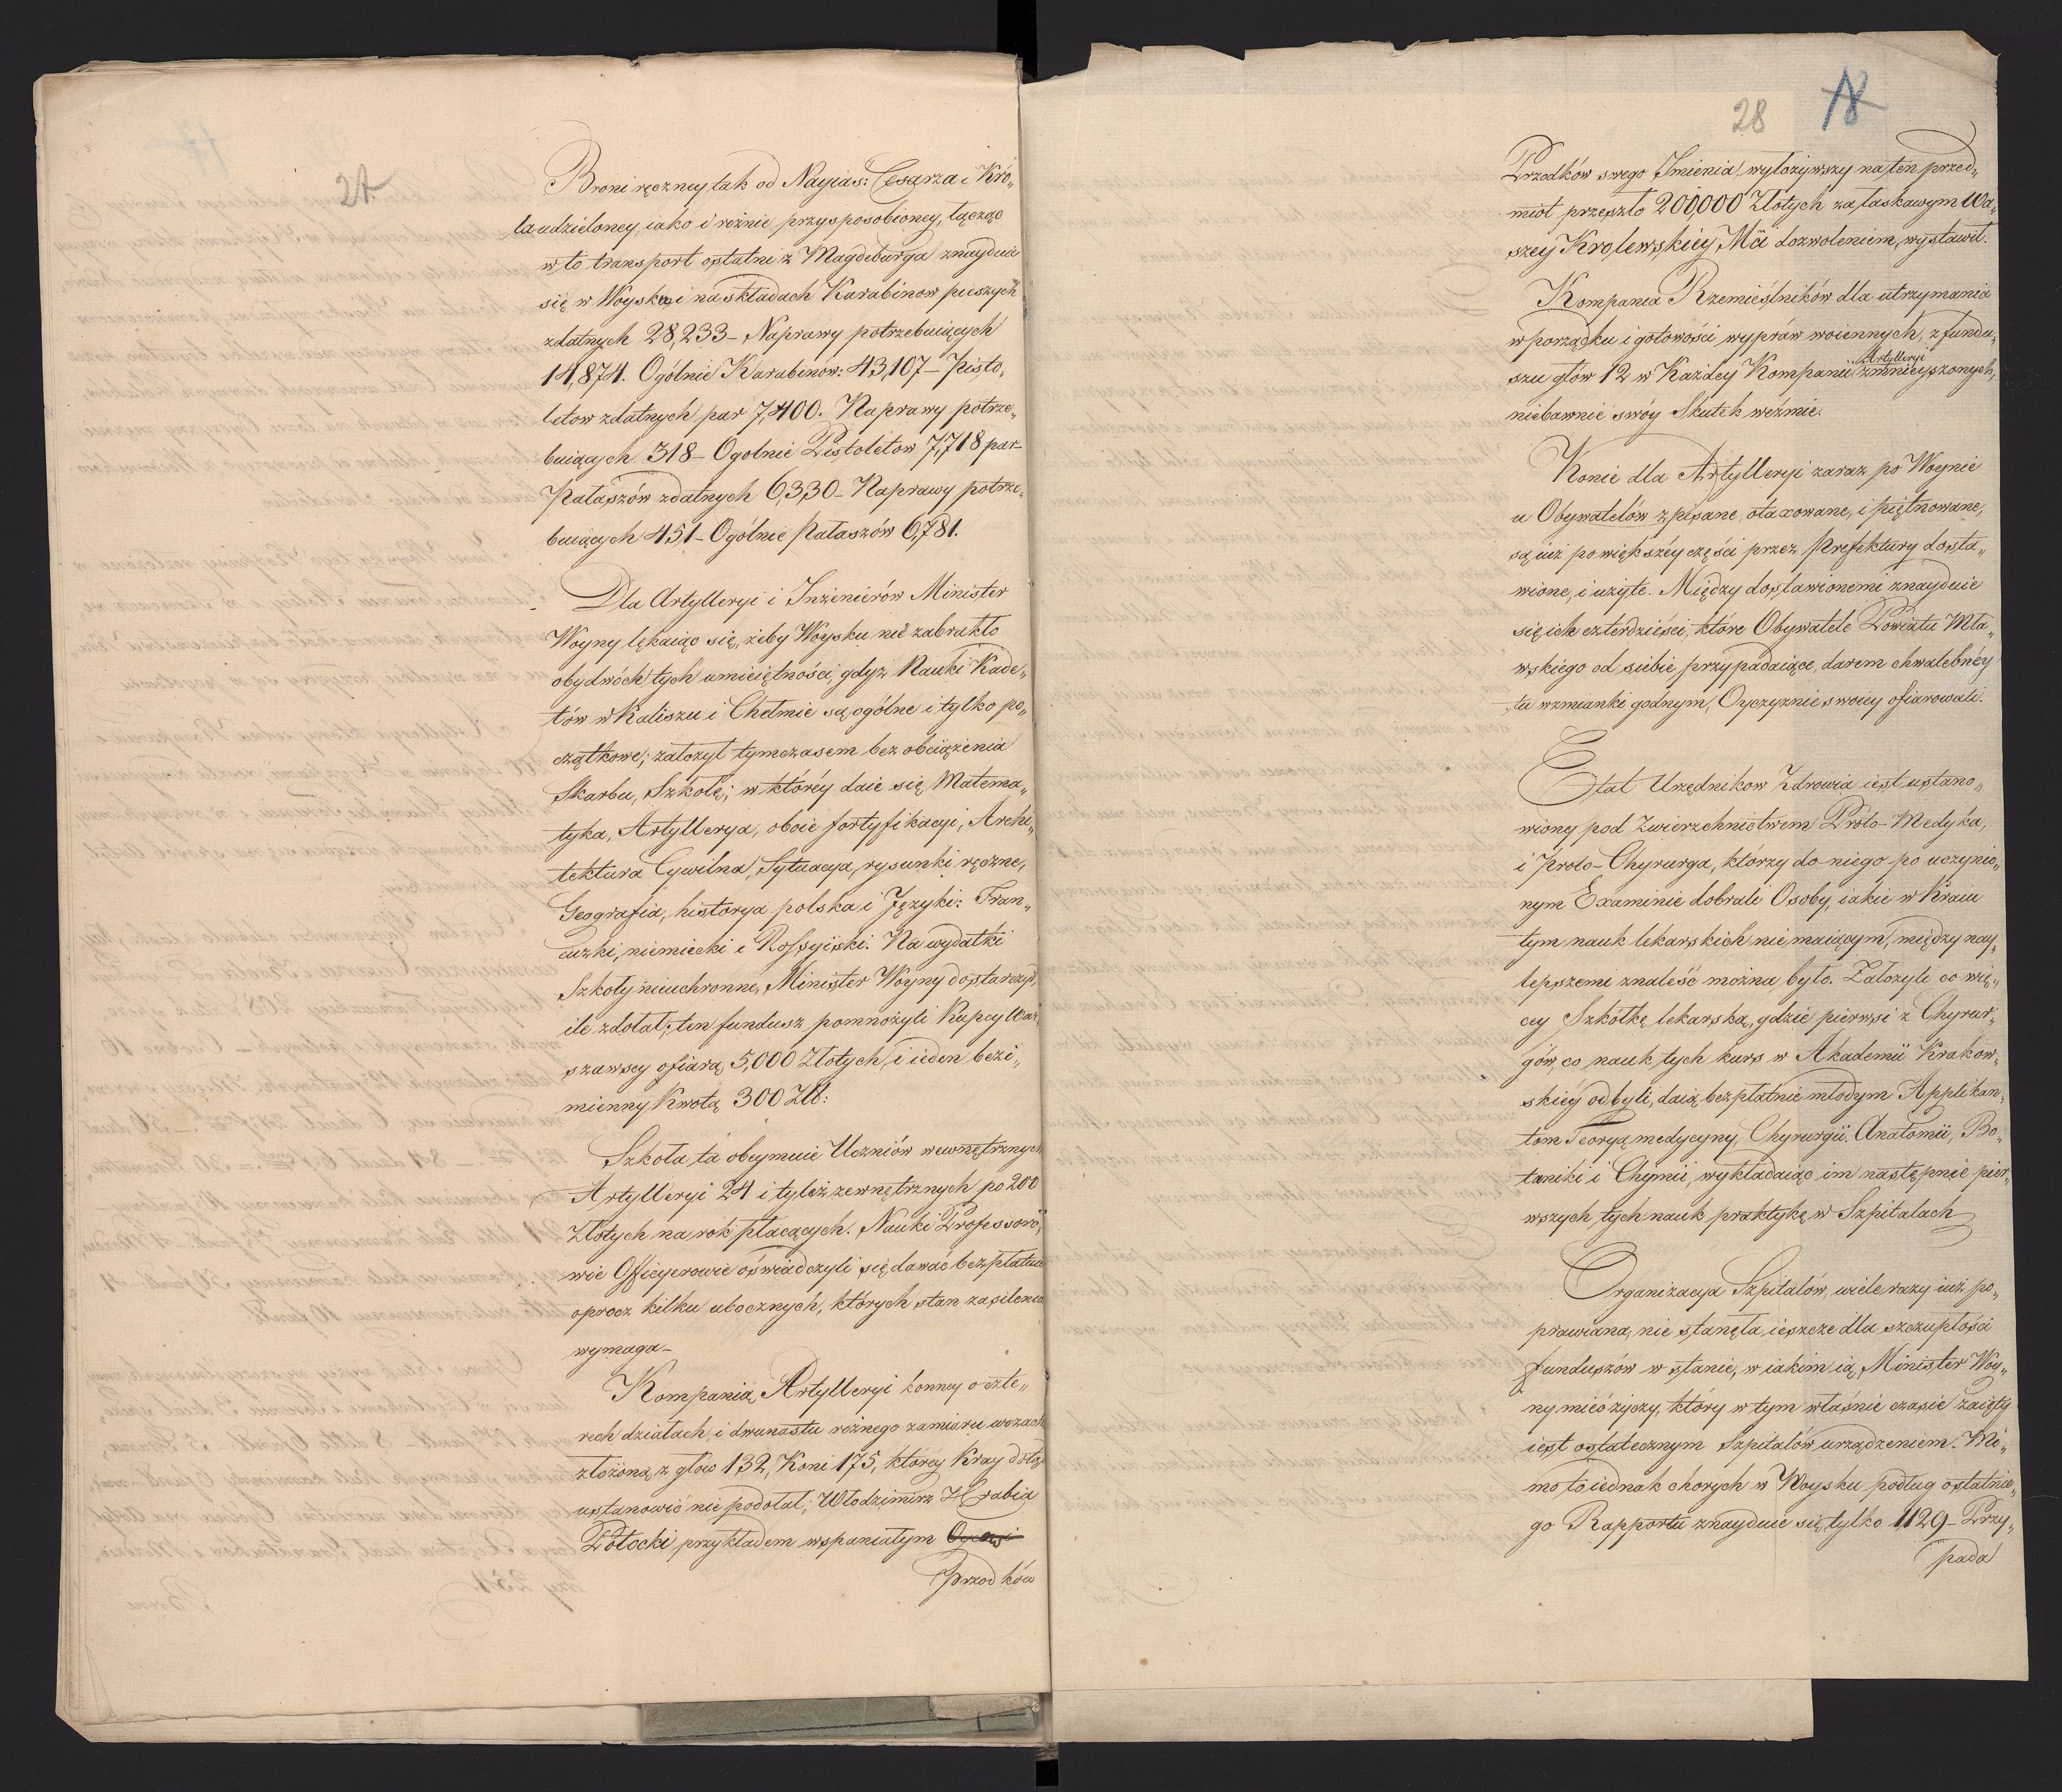 24.
Broni ręczney tak od Nayias: Cesarza i Kró„
la udzieloney, iako i rożnie przysposobioney, łącząc
w to transport ostatni z Magdeburga znayduie
się w Woysku i na składach Karabinow pieszych
zdatnych 28,233 – Naprawy potrzebuiących
14,874. Ogólnie Karabinów: 43,107 – Pisto„
letow zdatnych par 7,400. Naprawy potrze„
buiących 318 – Ogolnie Pistoletow 7,718 par –
Pałaszów zdatnych 6,330 – Naprawy potrze„
buiących 451 – Ogólnie Pałaszów 6,781.
Dla Artylleryi i Inżenierów Minister
Woyny lękaiąc się, żeby Woysku nie zabrakło
obydwóch tych umieiętności, gdyż Nauki Kade„
tów w Kaliszu i Chełmie są ogólne i tylko po„
czątkowe; założył tymczasem bez obciążenia
Skarbu, Szkołę; w któréy daie się, Matema„
tyka, Artyllerya, oboie fortyfikacyi, Archi„
tektura Cywilna, Sytuacya, rysunki ręczne,
Geografia, historya polska i Języki: Fran„
cuzki, niemiecki i Rossyiski. Na wydatki
Szkoły nieuchronne, Minister Woyny dostarczył,
ile zdołał; ten fundusz pomnożyli Kupcy War„
szawscy ofiarą 5,000 Złotych, i ieden bezi„
mienny Kwotą 300 Złł:
Szkoła ta obeymuie Uczniów wewnętrznych
Artylleryi 24 i tyleż zewnętrznych po 200
Złotych na rok płacących. Nauki Professoro„
wie Officyerowie oświadczyli się dawać bezpłatnie
oprocz kilku ubocznych, których stan zasilenia
wymaga –
Kompanią Artylleryi konney o czte„
rech działach, i dwunastu różnego zamiaru wozach
złożoną z głów 132, Koni 175, któréy Kray dotąd
ustanowić nie podołał; Włodzimirz Hrabia
Potocki przykładem wspaniałym
Przodków
28
18
Przodków swego Imienia, wyłożywszy na ten przed„
miot przeszło 200,000 Złotych za łaskawym Wa„
szey Krolewskiéy Mći dozwoleniem, wystawił.
Kompania Rzemieślników dla utrzymania
w porządku i gotowości wypraw woiennych, z fundu„
szu głow 12 w Każdey Kompanii Artylleryi zmnieyszonych,
niebawnie swóy Skutek weźmie.
Konie dla Artylleryi zaraz po Woynie
u Obywatelów zpisane, otaxowane, i piętnowane,
są iuż po większéy części przez Prefektury dosta„
wione, i użyte. Między dostawionemi znayduie
się ich czterdzieści, które Obywatele Powiatu Mła„
wskiego od siebie przypadaiące, darem chwalebnéy
tu wzmianki godnym, Oyczyznie swoiey ofiarowali.
Etat Urzędnikow Zdrowia iest ustano„
wiony pod Zwierzchnictwem Proto-Medyka,
i Proto-Chyrurga, którzy do niego po uczynio„
nym Examinie dobrali Osoby, iakie w Kraiu
tym nauk lekarskich nie maiącym, między nay„
lepszemi znaleść można było. Założyli co wię„
cey Szkółkę lekarską, gdzie pierwsi z Chyrur„
gów, co nauk tych kurs w Akademii Krakow„
skiéy odbyli, daią bezpłatnie młodym Applikan„
tom Teoryą medycyny, Chyrurgii, Anatomii, Bo„
taniki i Chymii, wykładaiąc im następnie pier„
wszych tych nauk praktykę w Szpitalach
Organizacya Szpitalów, wiele razy iuż po„
prawiana, nie stanęła ieszcze dla szczupłości
funduszów w stanie, w iakim ią, Minister Woy„
ny mieć życzy, który w tym właśnie czasie zaięty
iest ostatecznym Szpitalów urządzeniem. Mi„
mo to iednak chorych w Woysku podług ostatnie„
go Rapportu znayduie się tylko 1129 – Przy„
pada